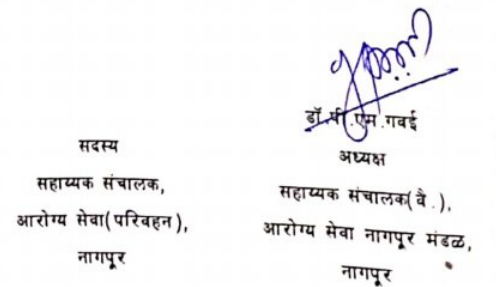 सदस्य
सहाय्यक संचालक,
आरोग्य सेवा(परिवहन),
नागपूर
डॉ.पी.एम.गवई
अध्यक्ष
सहाय्यक संचालक(वै.),
आरोग्य सेवा नागपूर मंडळ,
नागपूर